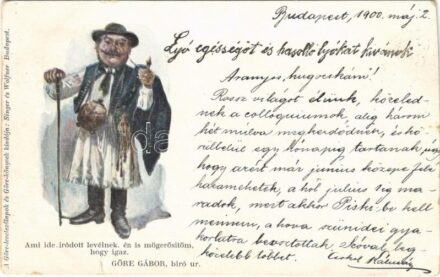 Budapest, 1900. máj. 2
Lyó egissigöt és hasolló lyókat kivánok
Aranyos hugocskám!
Rossz világot élünk, közeled-
nek a colloquiumok, alig három
hét mulva megkezdődnek, és kö-
rülbelül egy hónapig tartanak úgy
hogy azért már junius közepe felé
hazamehetek, a hol julius ig ma-
radok, mert akkor Piski be kell
mennem, a hova szünidei gya-
korlatra beosztottak. Szóval leg-
közelebb többet.
Kálmán
A Göre-levelezőlapok és Göre-könyvek kiadója: Singer és Wolfner Budapest.
Ami ide iródott levélnek, én is mögerősitöm,
hogy igaz.
GÖRE GÁBOR, biró ur.
da